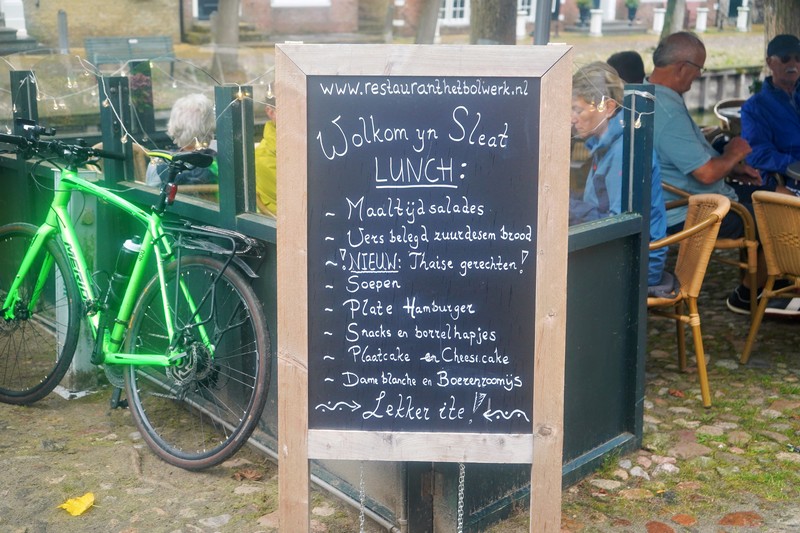 www.restauranthetbolwerk.nl
Wolkom yn Sleat
LUNCH:
~ Maaltijdsalades
~ Vers belegd zuurdesem brood
~ ! NIEUW: Thaise gerechten!
~ Soepen
~ Plate Hamburger
~ Snacks en borrelhapjes
~ Plaatcake en Cheesecake
~ Dame blanche en Boerenroomijs
Lekker ite!